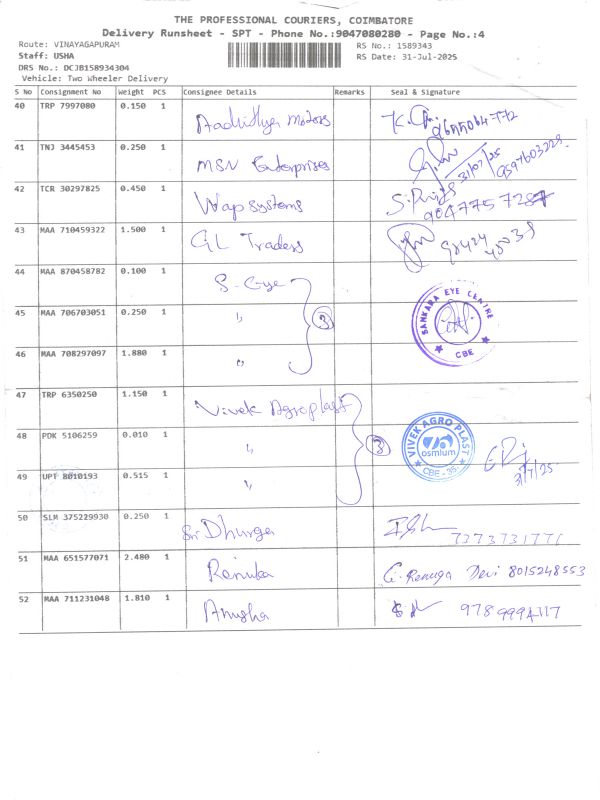 THE PROFESSIONAL COURIERS, COIMBATORE
Delivery Runsheet - SPT - Phone No.:9047080280 - Page No.:4
Route: VINAYAGAPURAM RS No.: 1589343
Staff: USHA RS Date: 31-Jul-2025
DRS No.: DCJB158934304
Vehicle: Two Wheeler Delivery
S No Consignment No Weight PCS Consignee Details Remarks Seal & Signature
40 TRP 7997080 0.150 1 Aadhithya Motors
41 TNJ 3445453 0.250 1 MSN Enterprises 31/07/25 9597603229
42 TCR 30297825 0.450 1 Wap systems 9047757287
43 MAA 710459322 1.500 1 GL Traders 98424 45038
44 MAA 870458782 0.100 1 S-Eye
45 MAA 706703051 0.250 1 " 3 SANKARA EYE CENTRE CBE
46 MAA 708297097 1.880 1 "
47 TRP 6350250 1.150 1 Vivek Agroplast
48 PDK 5106259 0.010 1 " 3 VIVEK AGRO PLAST osmium CBE - 35
49 UPT 8010193 0.515 1 " 31/7/25
50 SLM 375229930 0.250 1 Sri Dhurga 7373731771
51 MAA 651577071 2.480 1 Renuka G. Renuga Devi 8015248553
52 MAA 711231048 1.810 1 Anusha 9789994117